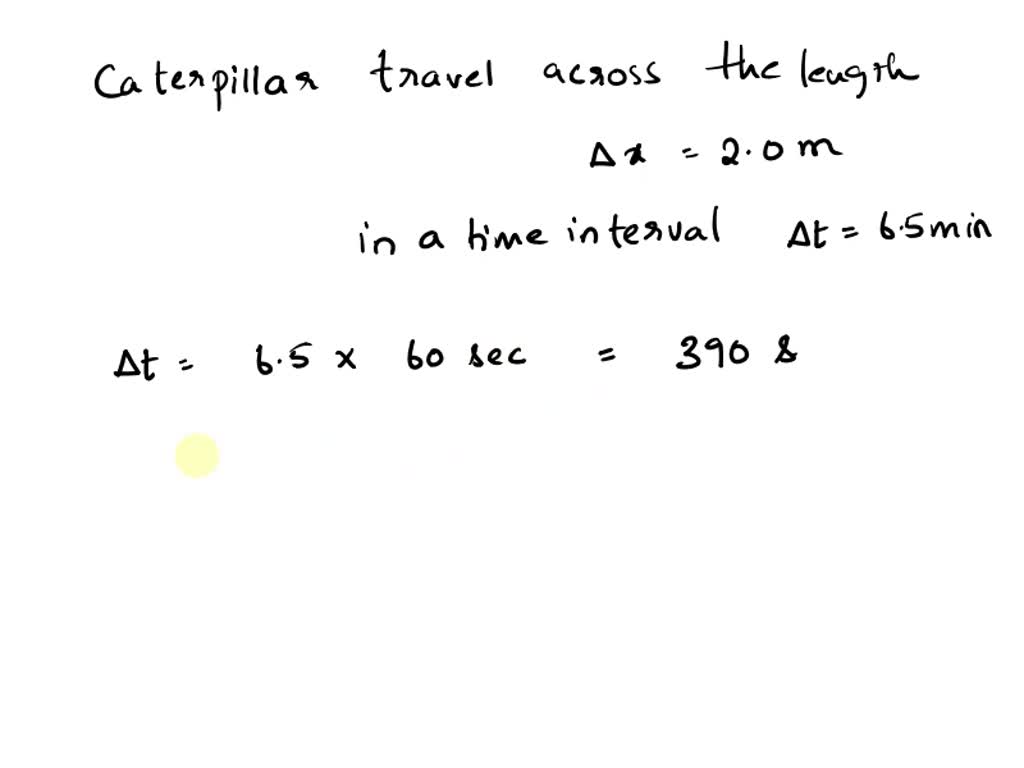 Caterpillar travel across the length
Δx = 2.0 m
in a time interval Δt = 6.5 min
Δt = 6.5 x 60 sec = 390 s